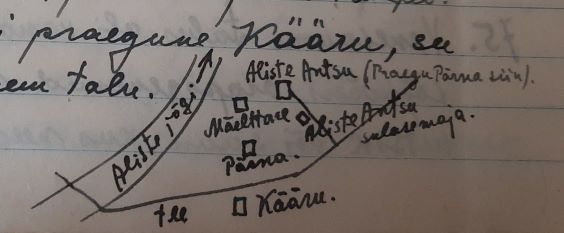 praegune Kääru, su
em talu.
Aliste Antsu (Praegu Pärna siin).
Aliste jõgi
Mäelttare
Aliste Antsu
sulasemaja.
Pärna.
tee
Kääru.